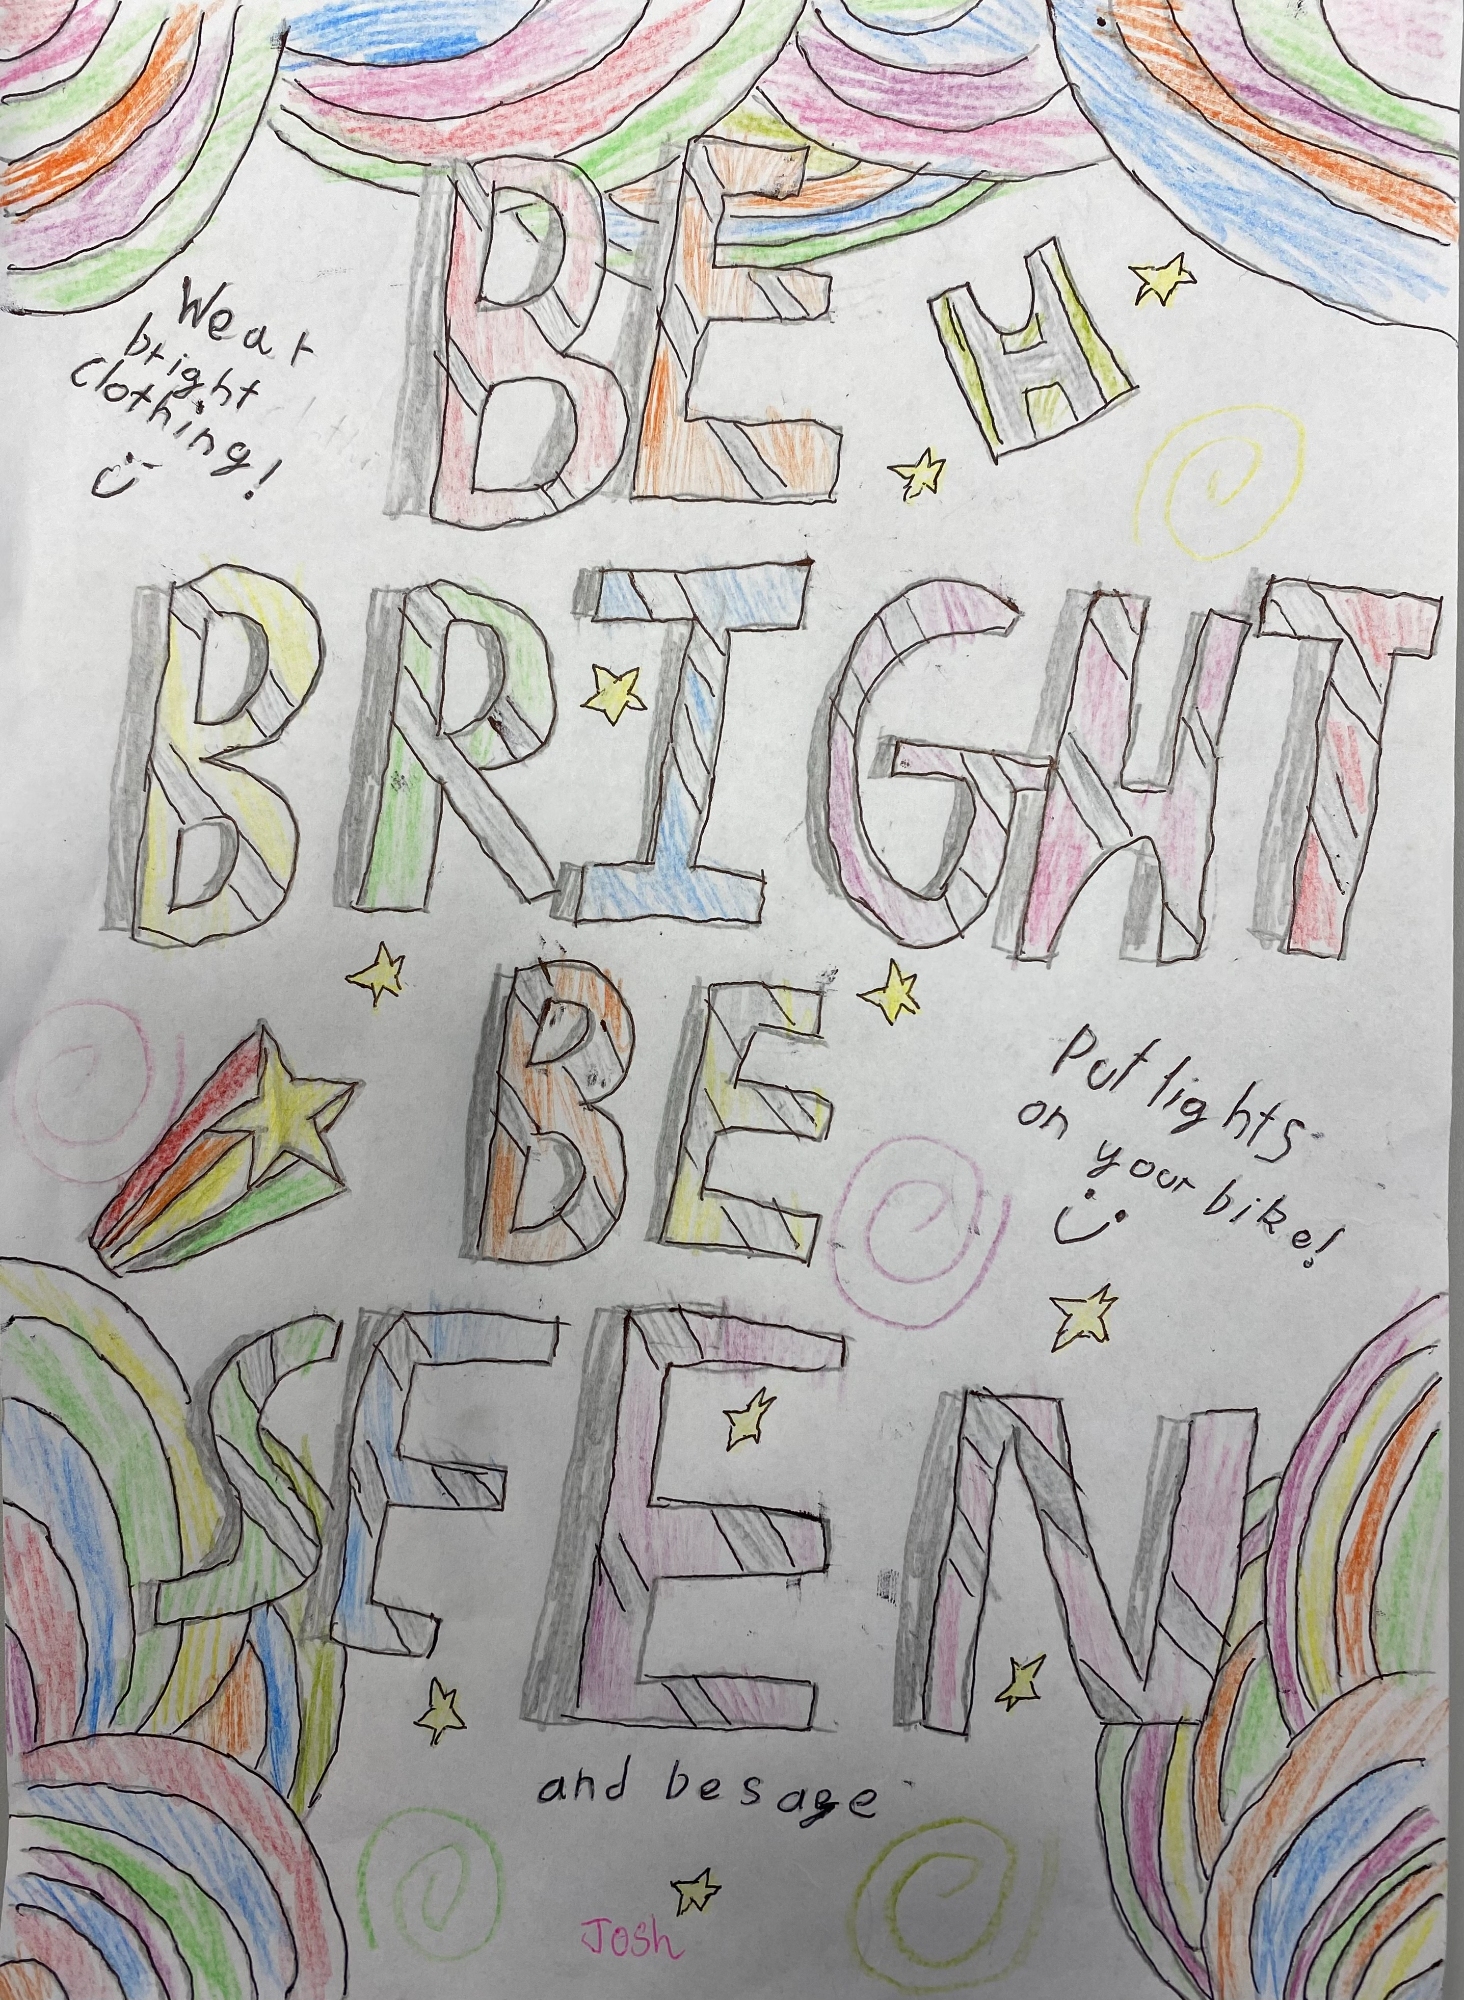 BE
Wear
bright
clothing!
BRIGHT
BE
Put lights
on your bike!
SEEN
and be sage
Josh